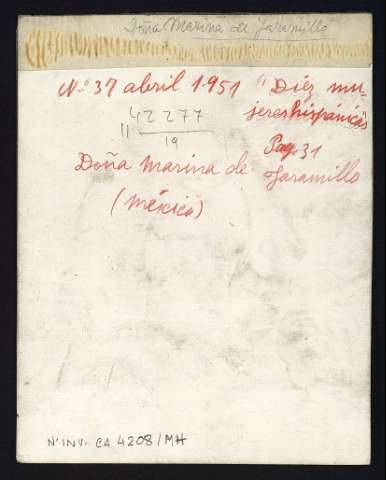 Doña Marina de Jaramillo
Nº 37 abril 1951 "Diez mu-
jeres hispánicas
42277
11
19
Pag. 31
Doña Marina de Jaramillo
(México)
Nº INV. CA 4208/MH